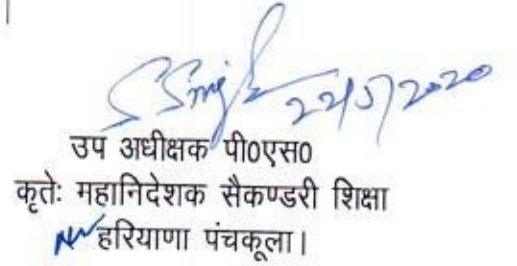 S Singh 22/5/2020
उप अधीक्षक पी०एस०
कृतेः महानिदेशक सैकण्डरी शिक्षा
हरियाणा पंचकूला।